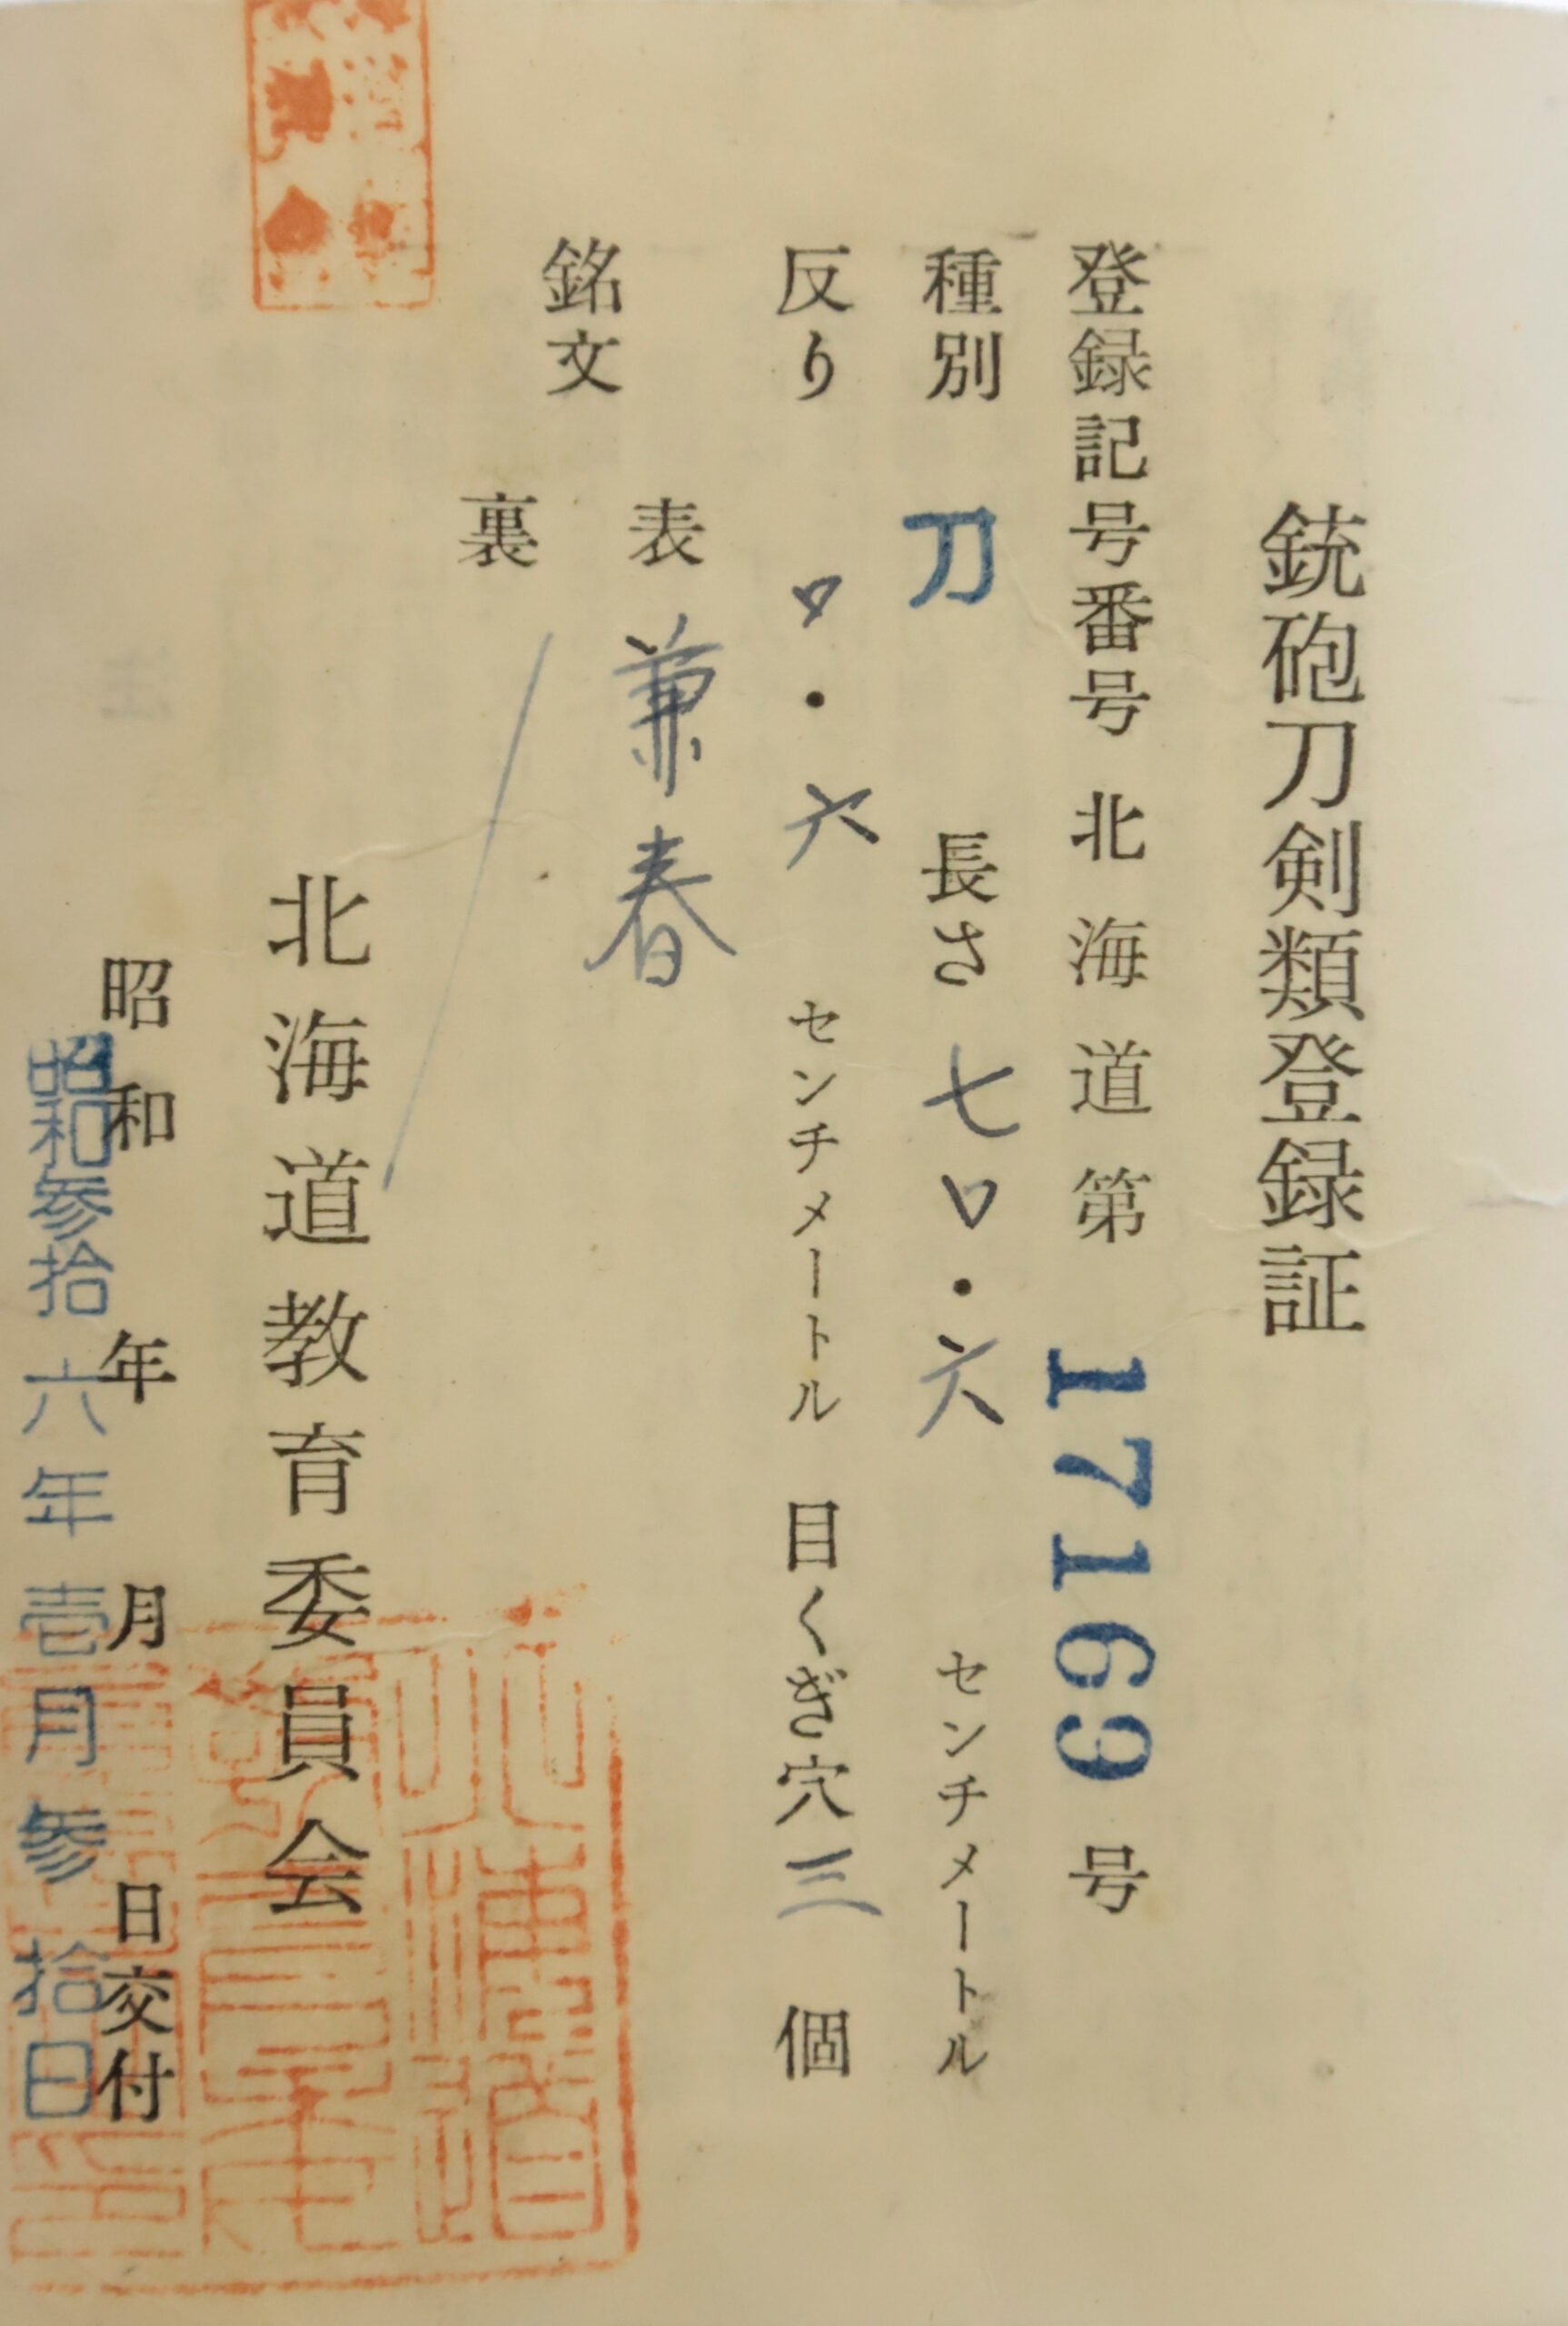 銃砲刀剣類登録証
登録記号番号 北海道第 17169 号
種別 刀 長さ 七〇・六 センチメートル
反り 〇・六 センチメートル 目くぎ穴 三 個
銘文
表 兼春
裏
北海道教育委員会
昭和 年 月 日交付
昭和参拾六年壱月参拾日